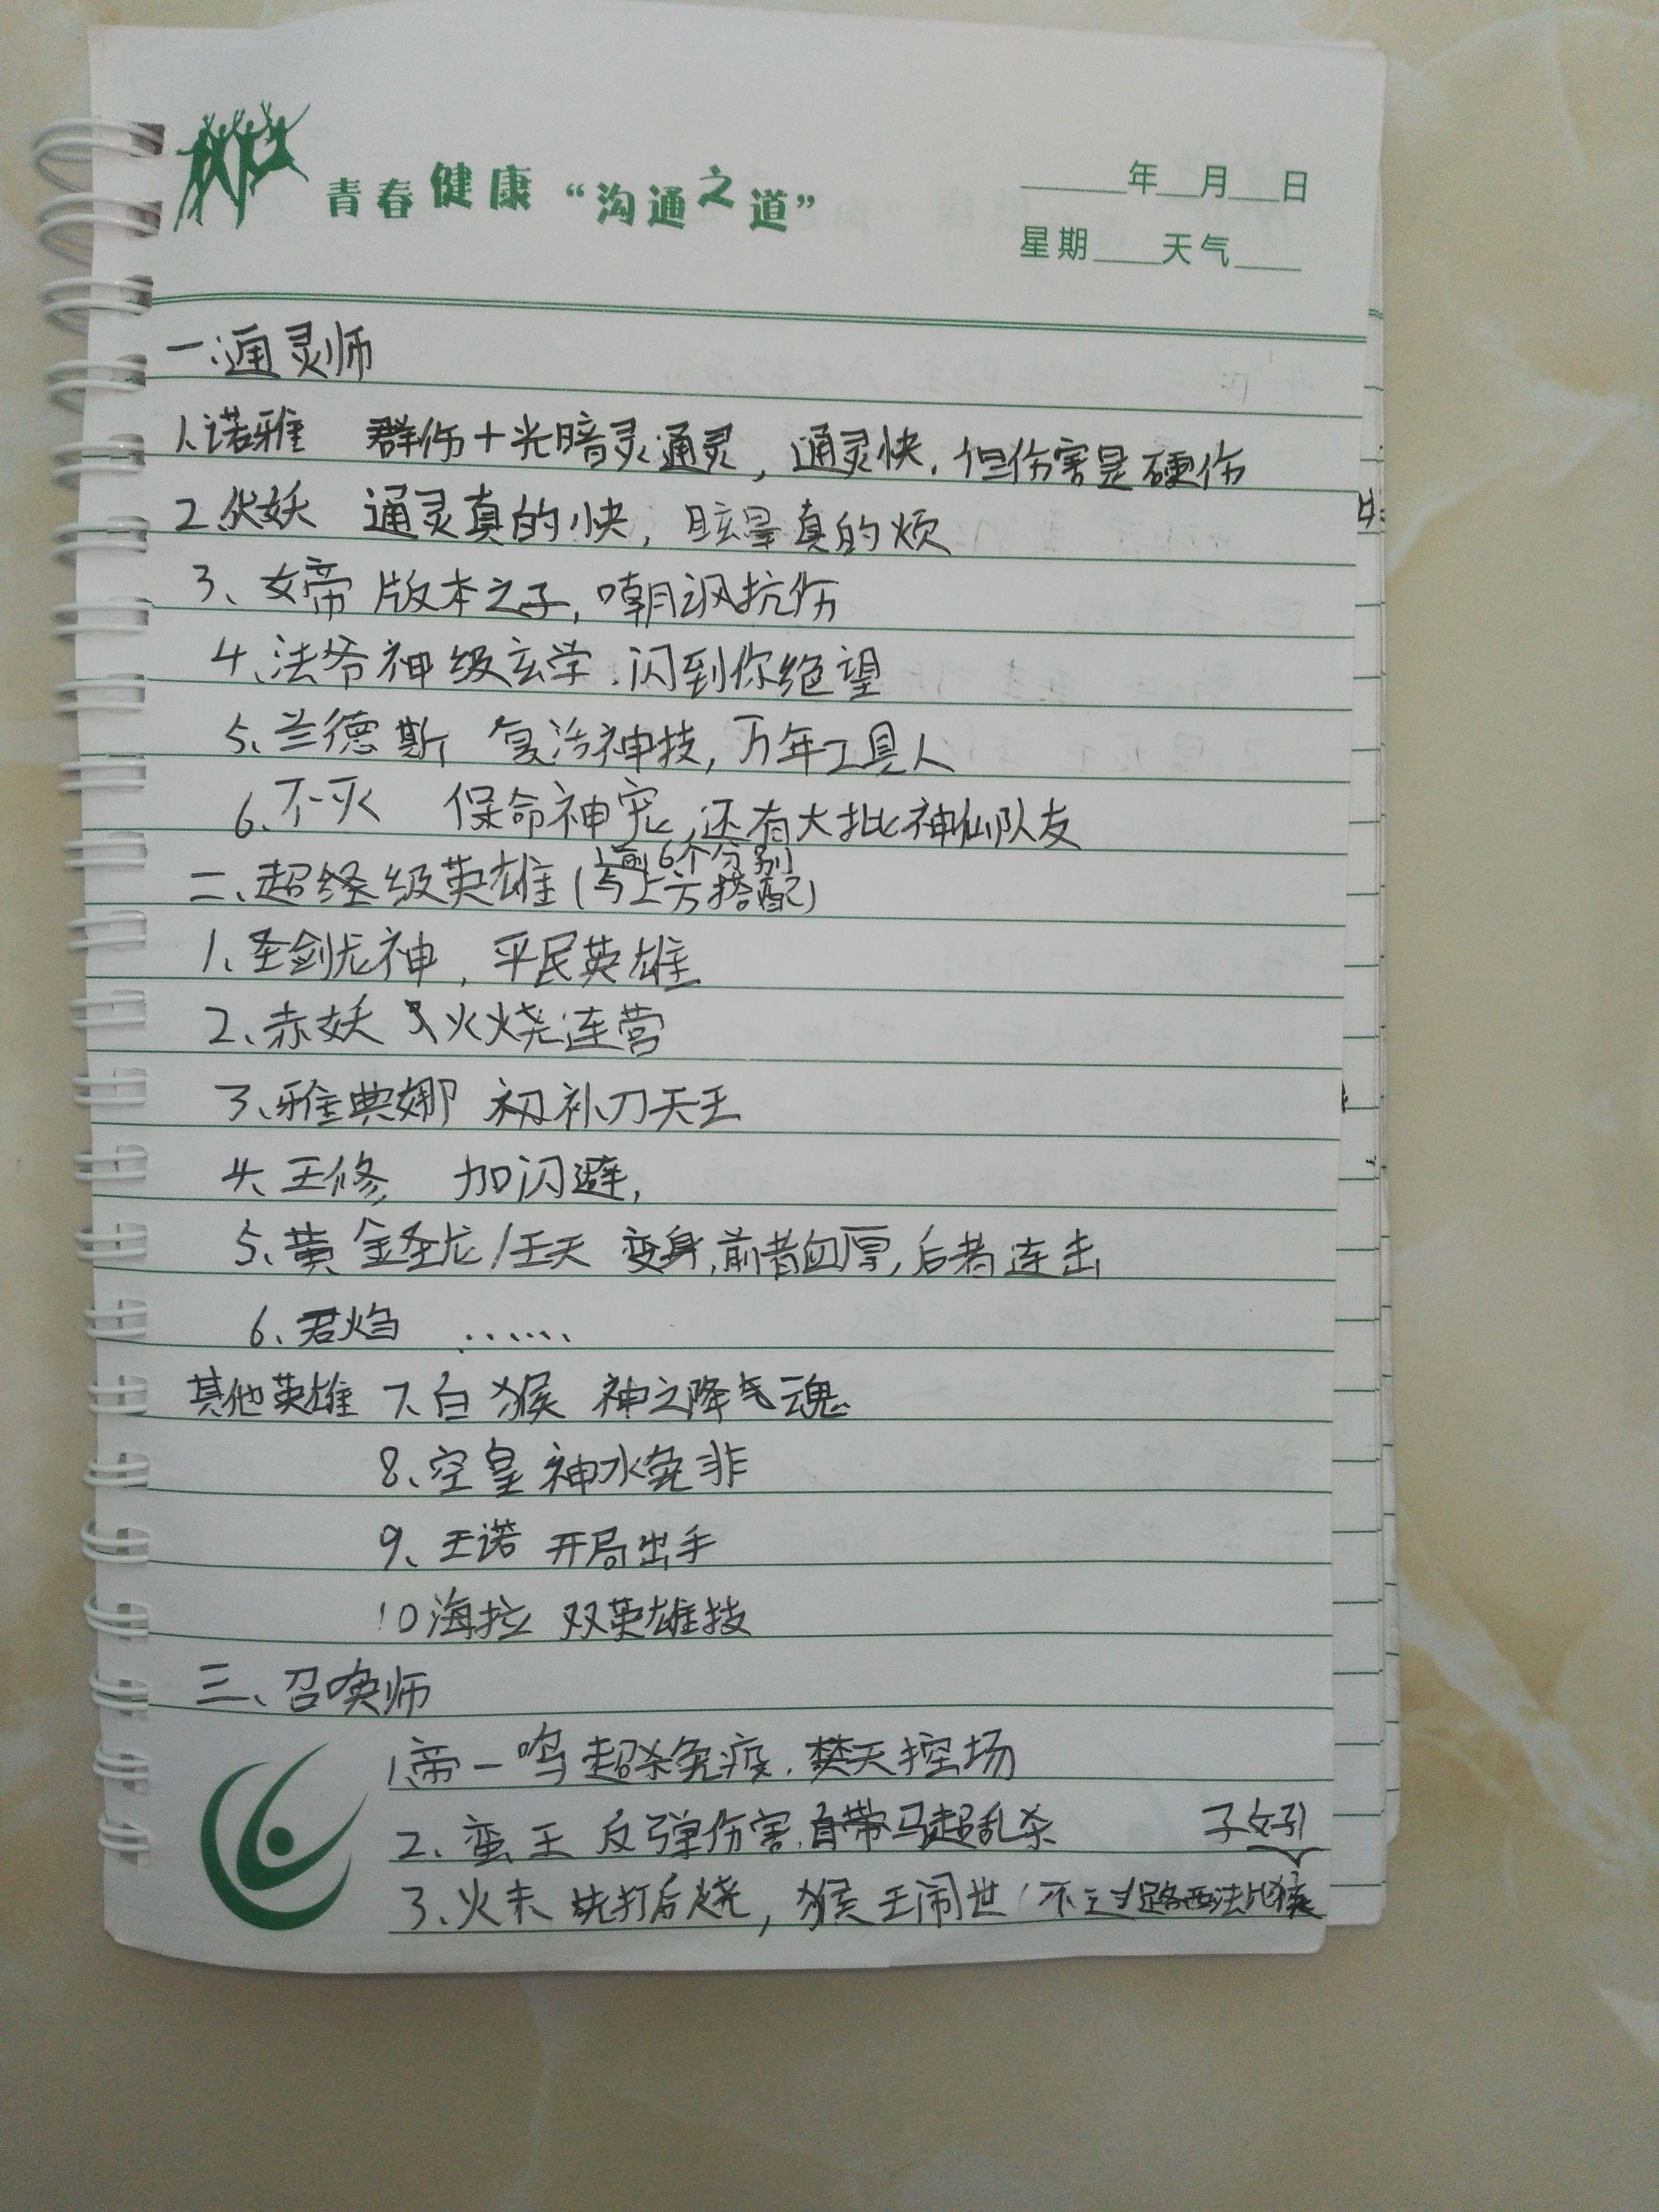 青春健康“沟通之道”
年 月 日
星期 天气
一、通灵师
1、诺雅 群伤+光暗灵通灵，通灵快，但伤害是硬伤
2、伏妖 通灵真的快，眩晕真的烦
3、女帝 版本之子，嘲讽抗伤
4、法爷 神级玄学，闪到你绝望
5、兰德斯 复活神技，万年工具人
6、不灭 保命神宠，还有大批神仙队友
二、超终级英雄（前6个分别
与上方搭配）
1、圣剑龙神，平民英雄
2、赤妖 火烧连营
3、雅典娜 补刀天王
4、王修 加闪避，
5、黄金圣龙/王天 变身，前者血厚，后者连击
6、君焰 ……
其他英雄 7、白猴 神之降魂
8、空皇 神水免非
9、王诺 开局出手
10 海拉 双英雄技
三、召唤师
1、帝一鸣 超杀免疫，焚天控场
2、蛮王 反弹伤害，自带马超乱杀
3、火末 先打后烧，猴王闹世（不过路西法比猴
子好）